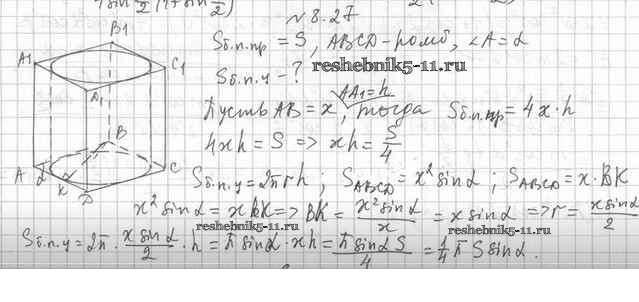 4sin α/2 (1+sin α/2)
№ 8.27
Sб.п.пр = S, ABCD-ромб, ∠A = α
Sб.п.ц - ?
reshebnik5-11.ru
AA1 = h
Пусть AB = x, тогда Sб.п.пр = 4x·h
4xh = S => xh = S/4
Sб.п.ц = 2πrh; SABCD = x² sinα; SABCD = x·BK
x² sinα = xBK => BK = x² sinα/x = x sinα => r = x sinα/2
Sб.п.ц = 2π · x sinα/2 · h = π sinα · xh = π sinα S/4 = 1/4 π S sinα.
reshebnik5-11.ru
reshebnik5-11.ru
B1
A1
C1
D1
B
A
α
C
K
D